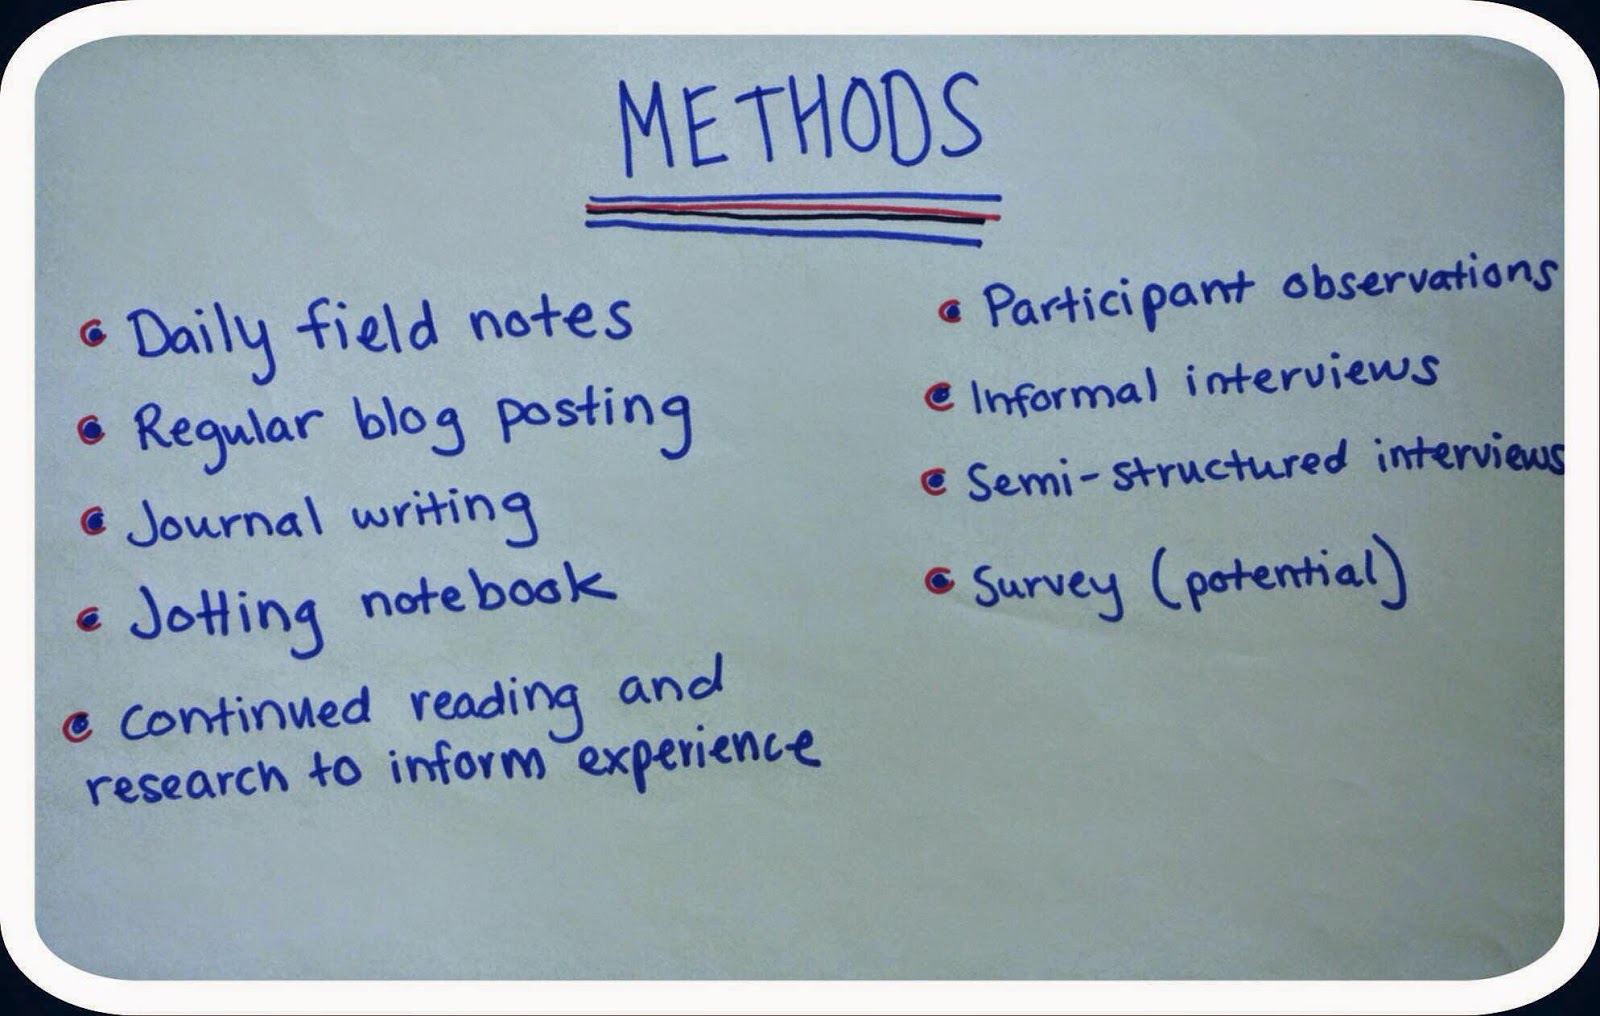 METHODS
Daily field notes
Regular blog posting
Journal writing
Jotting notebook
Continued reading and
research to inform experience
Participant observations
Informal interviews
Semi-structured interviews
Survey (potential)